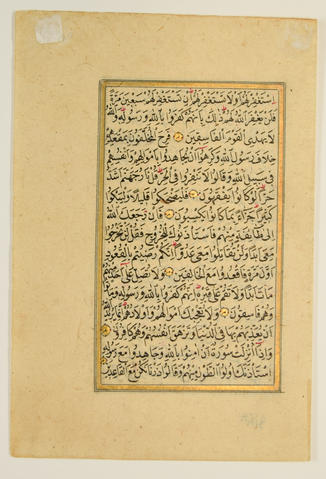 اِسْتَغْفِرْ لَهُمْ اَوْ لَا تَسْتَغْفِرْ لَهُمْ اِنْ تَسْتَغْفِرْ لَهُمْ سَبْعِينَ مَرَّةً
فَلَنْ يَغْفِرَ اللهُ لَهُمْ ذٰلِكَ بِاَنَّهُمْ كَفَرُوا بِاللهِ وَرَسُولِهِ وَاللهُ
لَا يَهْدِى الْقَوْمَ الْفَاسِقِينَ فَرِحَ الْمُخَلَّفُونَ بِمَقْعَدِهِمْ
خِلَافَ رَسُولِ اللهِ وَكَرِهُوا اَنْ يُجَاهِدُوا بِاَمْوَالِهِمْ وَاَنْفُسِهِمْ
فِى سَبِيلِ اللهِ وَقَالُوا لَا تَنْفِرُوا فِى الْحَرِّ قُلْ نَارُ جَهَنَّمَ اَشَدُّ
حَرًّا لَوْ كَانُوا يَفْقَهُونَ فَلْيَضْحَكُوا قَلِيلًا وَلْيَبْكُوا
كَثِيرًا جَزَاءً بِمَا كَانُوا يَكْسِبُونَ فَاِنْ رَجَعَكَ اللهُ
اِلٰى طَائِفَةٍ مِنْهُمْ فَاسْتَاْذَنُوكَ لِلْخُرُوجِ فَقُلْ لَنْ تَخْرُجُوا
مَعِىَ اَبَدًا وَلَنْ تُقَاتِلُوا مَعِىَ عَدُوًّا اِنَّكُمْ رَضِيتُمْ بِالْقُعُودِ
اَوَّلَ مَرَّةٍ فَاقْعُدُوا مَعَ الْخَالِفِينَ وَلَا تُصَلِّ عَلٰى اَحَدٍ مِنْهُمْ
مَاتَ اَبَدًا وَلَا تَقُمْ عَلٰى قَبْرِهِ اِنَّهُمْ كَفَرُوا بِاللهِ وَرَسُولِهِ وَمَاتُوا
وَهُمْ فَاسِقُونَ وَلَا تُعْجِبْكَ اَمْوَالُهُمْ وَاَوْلَادُهُمْ اِنَّمَا يُرِيدُ اللهُ
اَنْ يُعَذِّبَهُمْ بِهَا فِى الدُّنْيَا وَتَزْهَقَ اَنْفُسُهُمْ وَهُمْ كَافِرُونَ
وَاِذَا اُنْزِلَتْ سُورَةٌ اَنْ اٰمِنُوا بِاللهِ وَجَاهِدُوا مَعَ رَسُولِهِ
اسْتَاْذَنَكَ اُولُوا الطَّوْلِ مِنْهُمْ وَقَالُوا ذَرْنَا نَكُنْ مَعَ الْقَاعِدِينَ